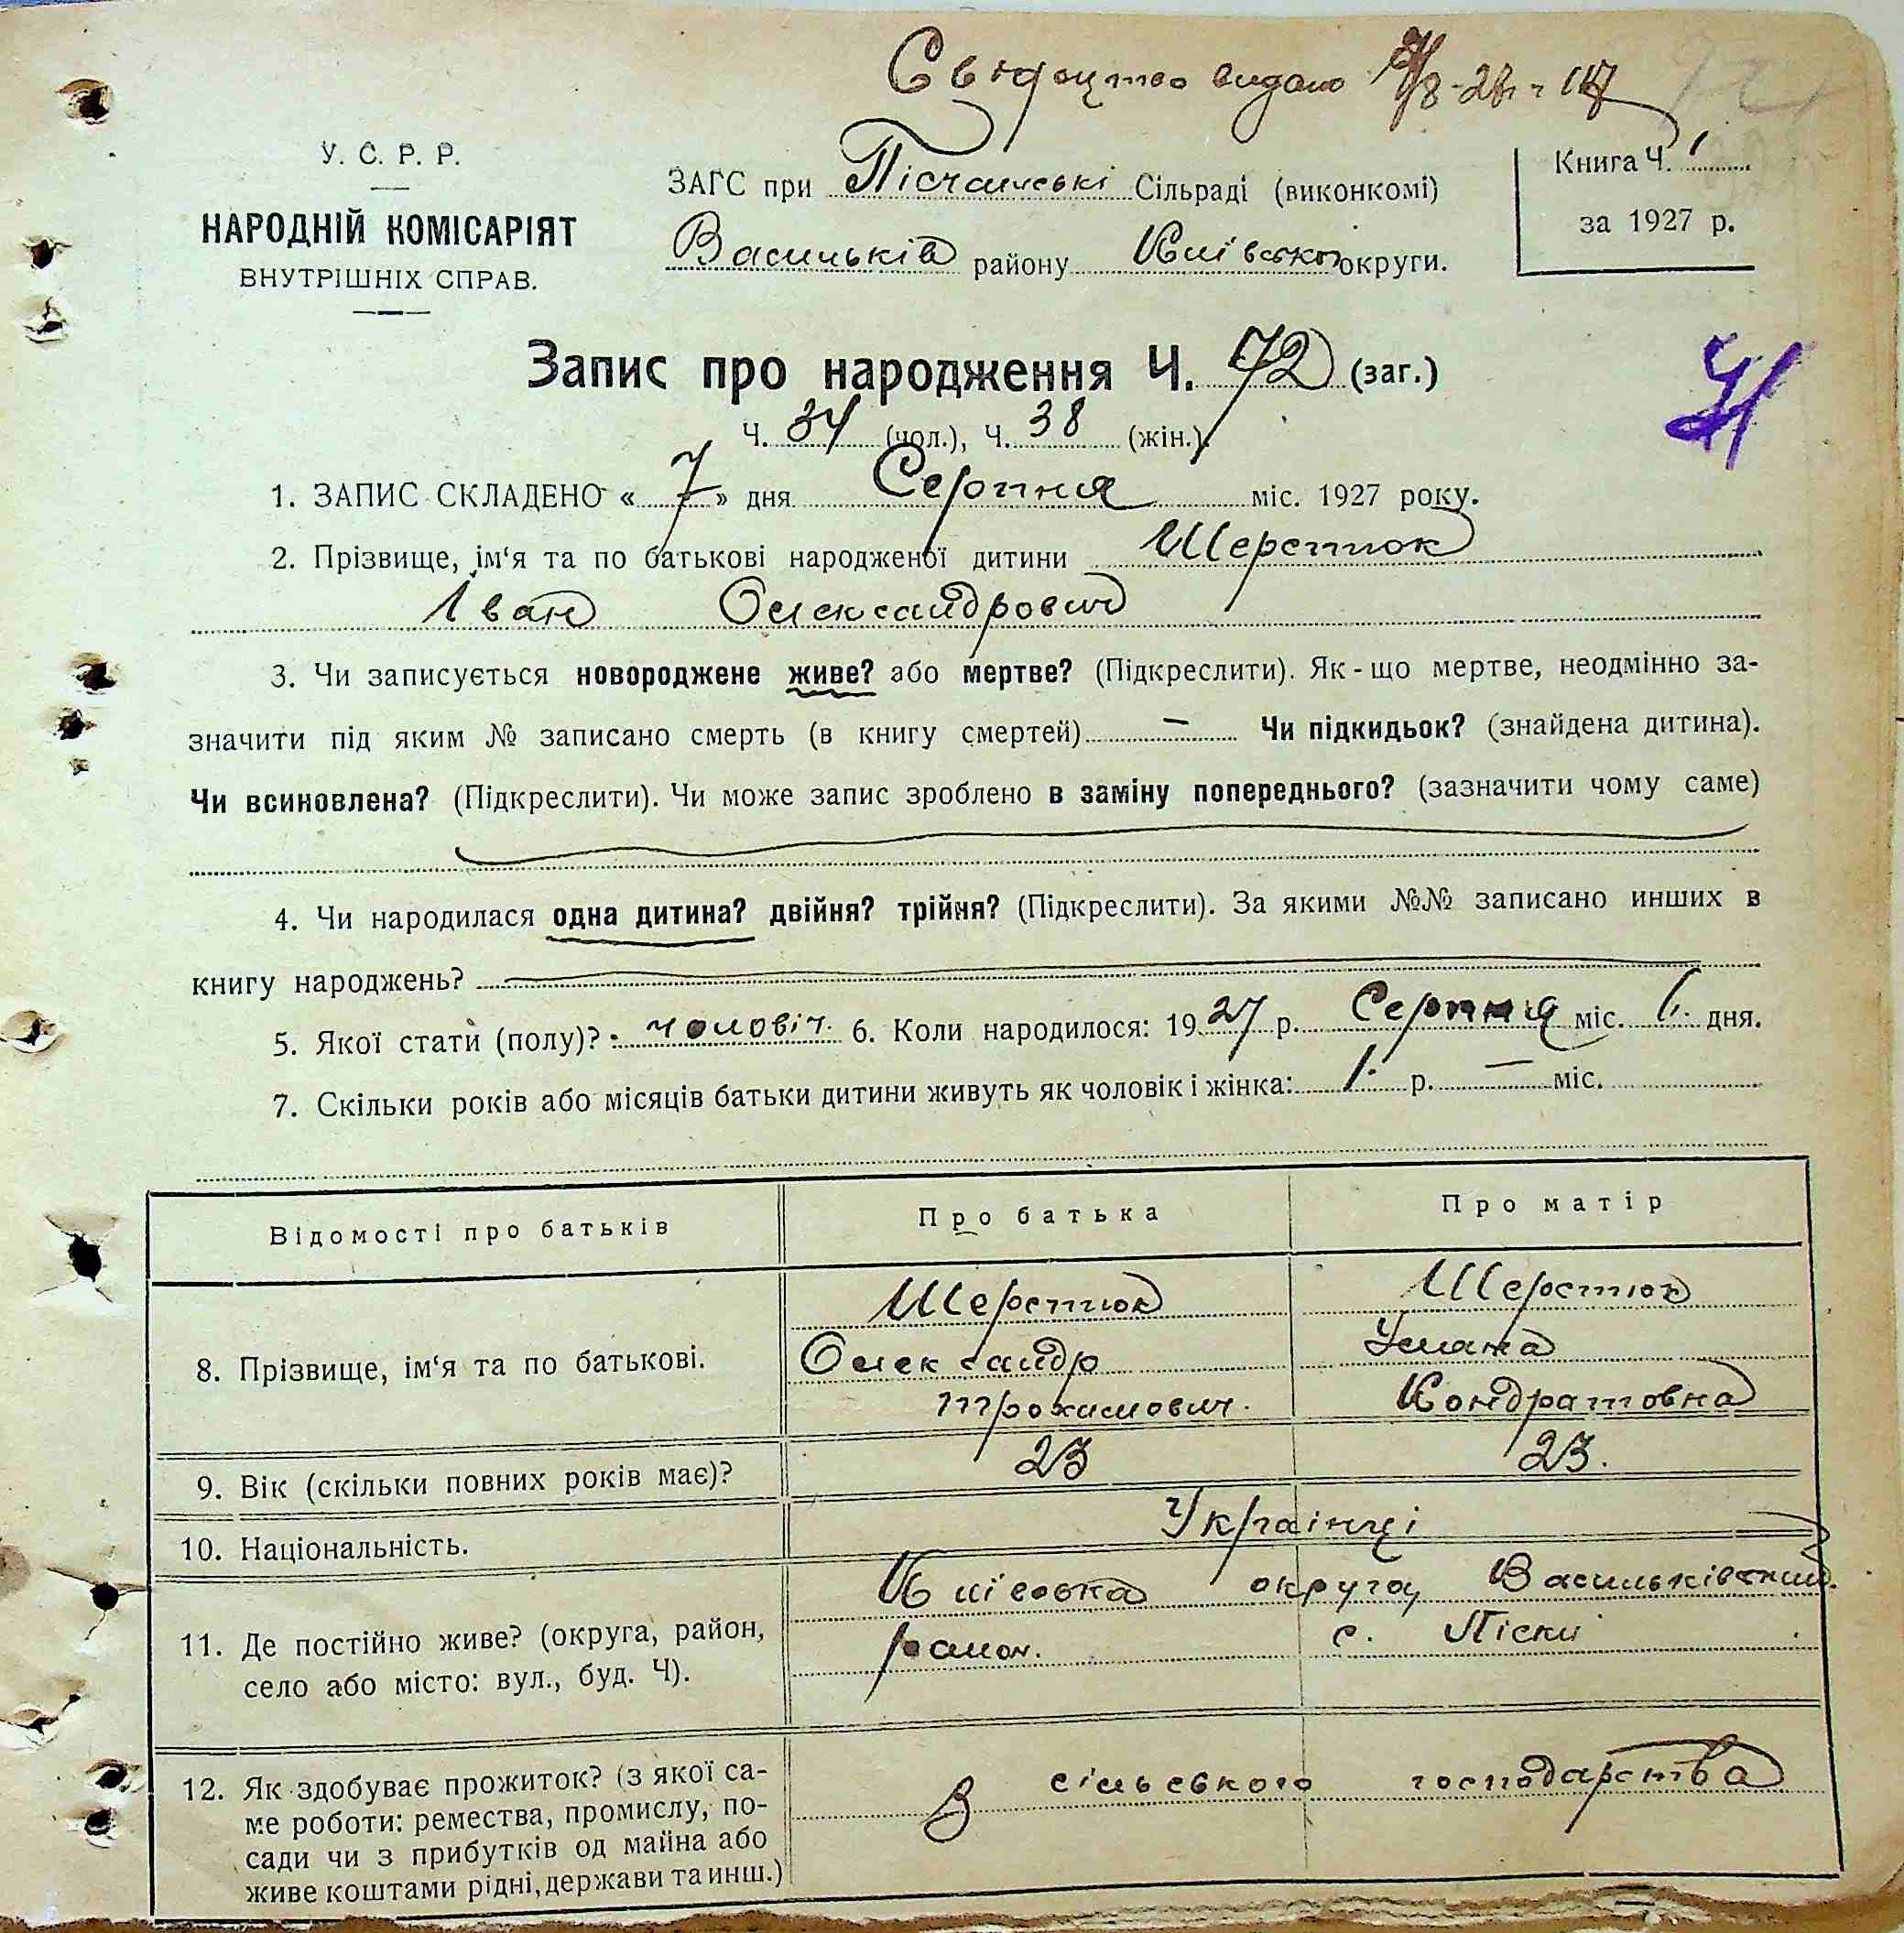 Свідоцтво видано
У. С. Р. Р.
НАРОДНІЙ КОМІСАРІЯТ
ВНУТРІШНІХ СПРАВ.
ЗАГС при Пісчанські Сільраді (виконкомі)
Васильків району Київсько округи.
Книга Ч. 1
за 1927 р.
Запис про народження Ч. 72 (заг.)
Ч. 34 (чол.), Ч. 38 (жін.)
41
1. ЗАПИС СКЛАДЕНО « 7 » дня Серпня міс. 1927 року.
2. Прізвище, ім'я та по батькові народженої дитини Шерстюк
Іван Олександрович
3. Чи записується новороджене живе? або мертве? (Підкреслити). Як-що мертве, неодмінно за-
значити під яким № записано смерть (в книгу смертей) — Чи підкидьок? (знайдена дитина).
Чи всиновлена? (Підкреслити). Чи може запис зроблено в заміну попереднього? (зазначити чому саме)
4. Чи народилася одна дитина? двійня? трійня? (Підкреслити). За якими №№ записано инших в
книгу народжень?
5. Якої стати (полу)? чоловіч. 6. Коли народилося: 1927 р. Серпня міс. дня.
7. Скільки років або місяців батьки дитини живуть як чоловік і жінка: 1 р. — міс.
Відомості про батьків Про батька Про матір
8. Прізвище, ім'я та по батькові.
Шерстюк
Олександр
Трохимович.
Шерстюк
Уляна
Кондратовна
9. Вік (скільки повних років має)? 23 23.
10. Національність. Українці
11. Де постійно живе? (округа, район,
село або місто: вул., буд. Ч).
Київська округа, Васильківський
район. с. Піски
12. Як здобуває прожиток? (з якої са-
ме роботи: ремества, промислу, по-
сади чи з прибутків од майна або
живе коштами рідні, держави та инш.)
З сільського господарства